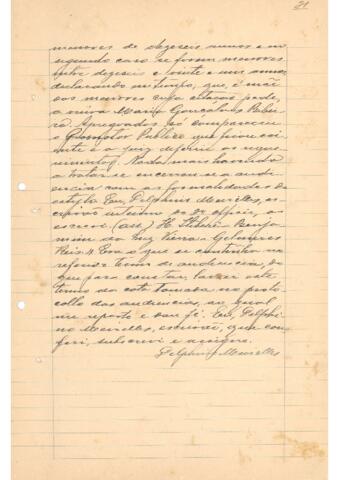 21
menores de dezeseis annos e no
segundo caso se forem menores
entre dezeseis e vinte e um annos
declarando em tempo, que, é mãe
dos menores cuja citação pede,
a viuva Maria Gonçalves Ribei
ro. Apregoados só compareceu
o Promotor Publico que ficou sci
ente e o juiz deferiu os reque
rimentos. Nada mais havendo
a tratar se encerrou a audi
encia com as formalidades do
estylo. Eu, Delphino Meirelles, es
crivão interino do 2º officio, as
escrevi. (ass) H.
mim da Luz Vieira. Gelmires
Reis. Era o que se continha no
referido termo de audiencia, do
que para constar, lavrei este
termo da cota tomada no proto
collo das audiencias, ao qual
me reporto e dou fé. Eu, Delphi
no Meirelles, escrivão, que con
feri, subscrevi e assigno.
Delphino Meirelles